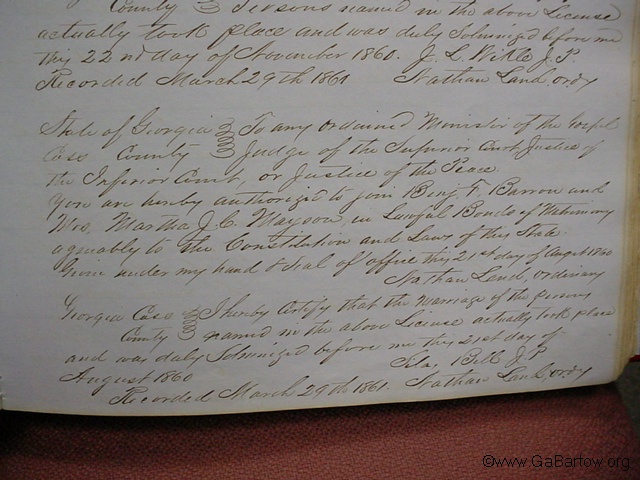 County Persons named in the above License
actually took place and was duly Solmnized before me
this 22nd day of November 1860. J. L. Wikle J. P.
Recorded March 29th 1861 Nathan Land, ordy
State of Georgia To any ordained Minister of the Gospel
Cass County Judge of the Superior Court, Justice of
the Inferior Court, or Justice of the Peace
You are hereby authorized to join Benj. F. Barron and
Mrs. Martha J. C. Mayson, in Lawful Bonds of Matrimony
agreeably to the Constitution and Laws of this State.
Given under my hand & Seal of office this 21st day of August 1860
Nathan Land, ordinary
Georgia Cass I hereby Certify that the marriage of the persons
County named in the above License actually took place
and was duly Solmnized before me this 21st day of
August 1860 Bell J P.
Recorded March 29th 1861. Nathan Land, ordy
©www.GaBartow.org